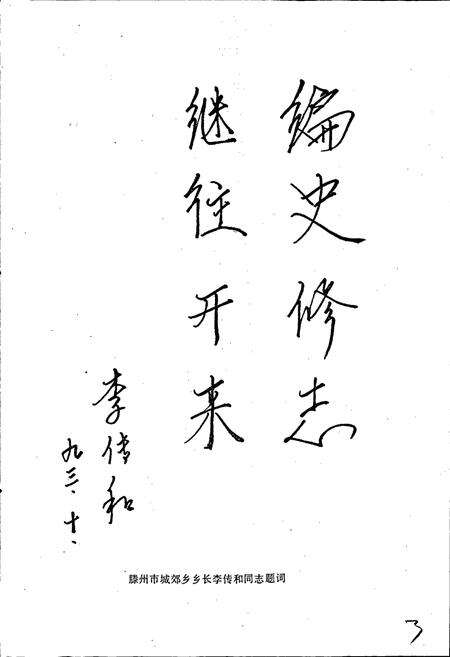 编史修志
继往开来
李传和
九三、十、
滕州市城郊乡乡长李传和同志题词
3